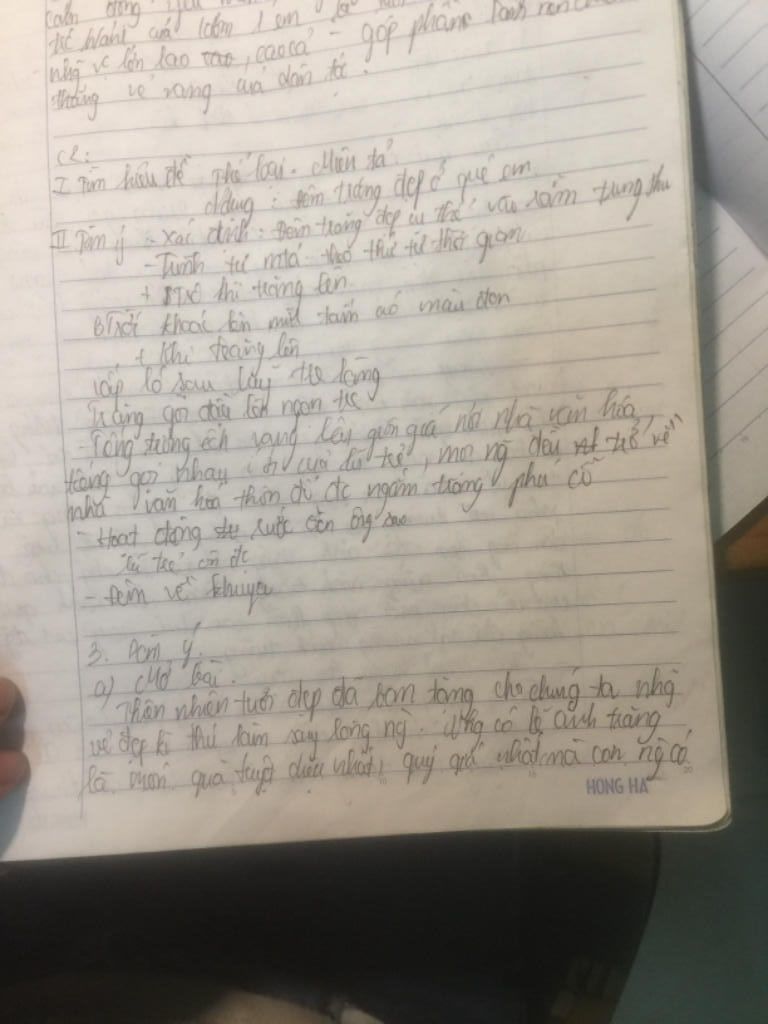 nhg vc lớn lao cao, cao cả - góp phần
thắng vẻ vang của dân tộc.
C2:
I Tìm hiểu đề Thể loại. Miêu tả
ndung: Đêm trăng đẹp ở quê em
II Tìm ý - Xác định: Đêm trăng đẹp cụ thể vào rằm trung thu
- Trình tự mtả theo thứ tự thời gian
+ trc khi trăng lên
Btrời khoác lên mình tấm áo màu đen
+ Khi trăng lên
lấp ló sau lũy tre làng
Trăng gối đầu lên ngọn tre
- Tiếng trống ếch vang lên giòn giã nơi nhà văn hóa,
tiếng gọi nhau í ới của lũ trẻ, mọi ng đều trở về
nhà văn hóa thôn để đc ngắm trăng phá cỗ
- Hoạt động rước đèn ông sao
lũ trẻ
- Đêm về khuya
3. Dàn ý.
a) Mở bài.
Thiên nhiên tươi đẹp đã ban tặng cho chúng ta nhg
vẻ đẹp kì thú làm say lòng ng. Nhg có lẽ ánh trăng
là món quà tuyệt diệu nhất, quý giá nhất mà con ng có
HONG HA